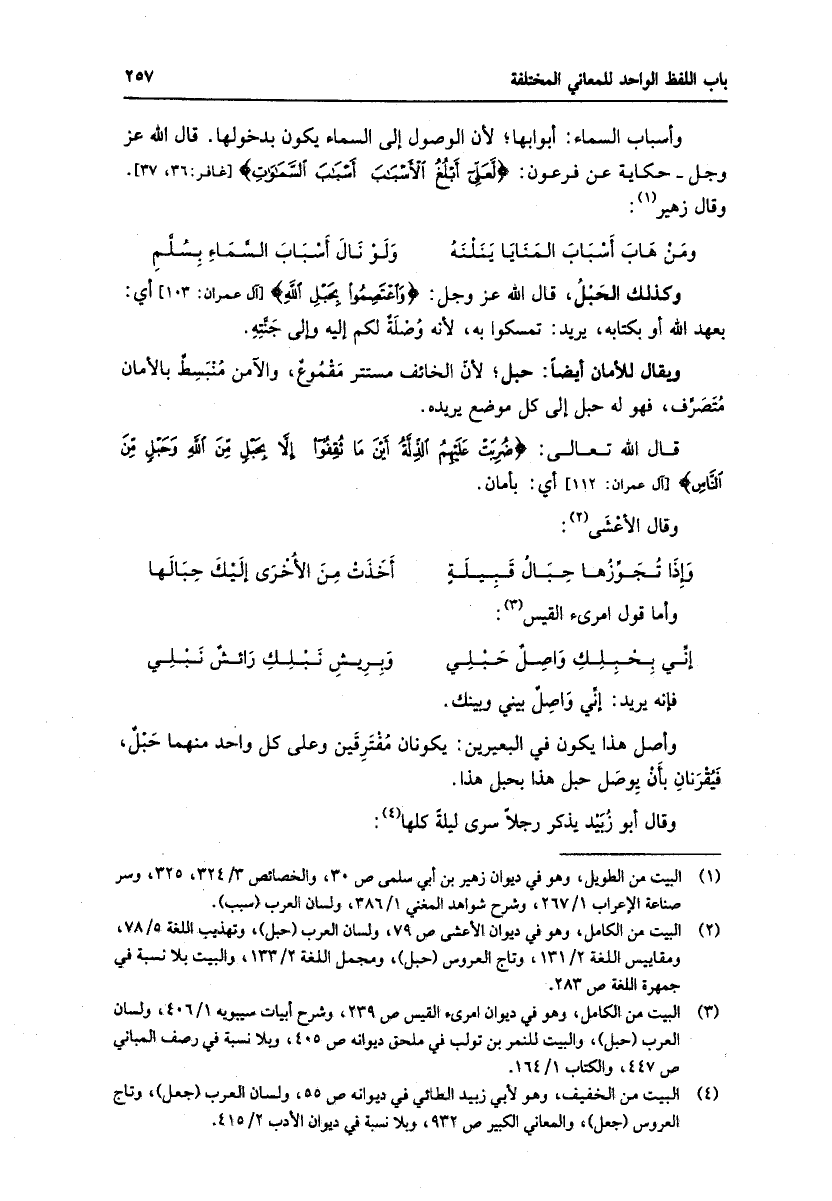 باب اللفظ الواحد للمعاني المختلفة ٢٥٧
وأسباب السماء: أبوابها؛ لأن الوصول إلى السماء يكون بدخولها. قال الله عز
وجل ـ حكاية عن فرعون: ﴿لَّعَلِّىٓ أَبْلُغُ ٱلْأَسْبَٰبَ أَسْبَٰبَ ٱلسَّمَٰوَٰتِ﴾ [غافر: ٣٦، ٣٧].
وقال زهير(١):
وَمَنْ هَابَ أَسْبَابَ المَنَايَا يَنَلْنَهُ وَلَوْ نَالَ أَسْبَابَ السَّمَاءِ بِسُلَّمِ
وكذلك الحَبْلُ، قال الله عز وجل: ﴿وَٱعْتَصِمُوا۟ بِحَبْلِ ٱللَّهِ﴾ [آل عمران: ١٠٣] أي:
بعهد الله أو بكتابه، يريد: تمسكوا به، لأنه وُصْلَةٌ لكم إليه وإلى جَنَّتِهِ.
ويقال للأمان أيضاً: حبل؛ لأنّ الخائف مستتر مَقْمُوعٌ، والآمن مُنْبَسِطٌ بالأمان
مُتَصَرِّف، فهو له حبل إلى كل موضع يريده.
قال الله تعالى: ﴿ضُرِبَتْ عَلَيْهِمُ ٱلذِّلَّةُ أَيْنَ مَا ثُقِفُوٓا۟ إِلَّا بِحَبْلٍ مِّنَ ٱللَّهِ وَحَبْلٍ مِّنَ
ٱلنَّاسِ﴾ [آل عمران: ١١٢] أي: بأمان.
وقال الأعْشَى(٢):
وَإِذَا تُجَوِّزُها حِبَالُ قَبِيلَةٍ أَخَذَتْ مِنَ الأُخْرَى إلَيْكَ حِبَالَها
وأما قول امرىء القيس(٣):
إنِّي بِحَبْلِكِ وَاصِلٌ حَبْلِي وَبِرِيشِ نَبْلِكِ رَائشٌ نَبْلِي
فإنه يريد: إنِّي وَاصِلٌ بيني وبينك.
وأصل هذا يكون في البعيرين: يكونان مُفْتَرِقَين وعلى كل واحد منهما حَبْلٌ،
فَيُقْرَنانِ بأَنْ يوصَل حبل هذا بحبل هذا.
وقال أبو زُبَيْد يذكر رجلاً سرى ليلةً كلها(٤):
(١) البيت من الطويل، وهو في ديوان زهير بن أبي سلمى ص ٣٠، والخصائص ٣/ ٣٢٤، ٣٢٥، وسر
صناعة الإعراب ١/ ٢٦٧، وشرح شواهد المغني ١/ ٣٨٦، ولسان العرب (سبب).
(٢) البيت من الكامل، وهو في ديوان الأعشى ص ٧٩، ولسان العرب (حبل)، وتهذيب اللغة ٥/ ٧٨،
ومقاييس اللغة ٢/ ١٣١، وتاج العروس (حبل)، ومجمل اللغة ٢/ ١٣٣، والبيت بلا نسبة في
جمهرة اللغة ص ٢٨٣.
(٣) البيت من الكامل، وهو في ديوان امرىء القيس ص ٢٣٩، وشرح أبيات سيبويه ١/ ٤٠٦، ولسان
العرب (حبل)، والبيت للنمر بن تولب في ملحق ديوانه ص ٤٠٥، وبلا نسبة في رصف المباني
ص ٤٤٧، والكتاب ١/ ١٦٤.
(٤) البيت من الخفيف، وهو لأبي زبيد الطائي في ديوانه ص ٥٥، ولسان العرب (جعل)، وتاج
العروس (جعل)، والمعاني الكبير ص ٩٣٢، وبلا نسبة في ديوان الأدب ٢/ ٤١٥.